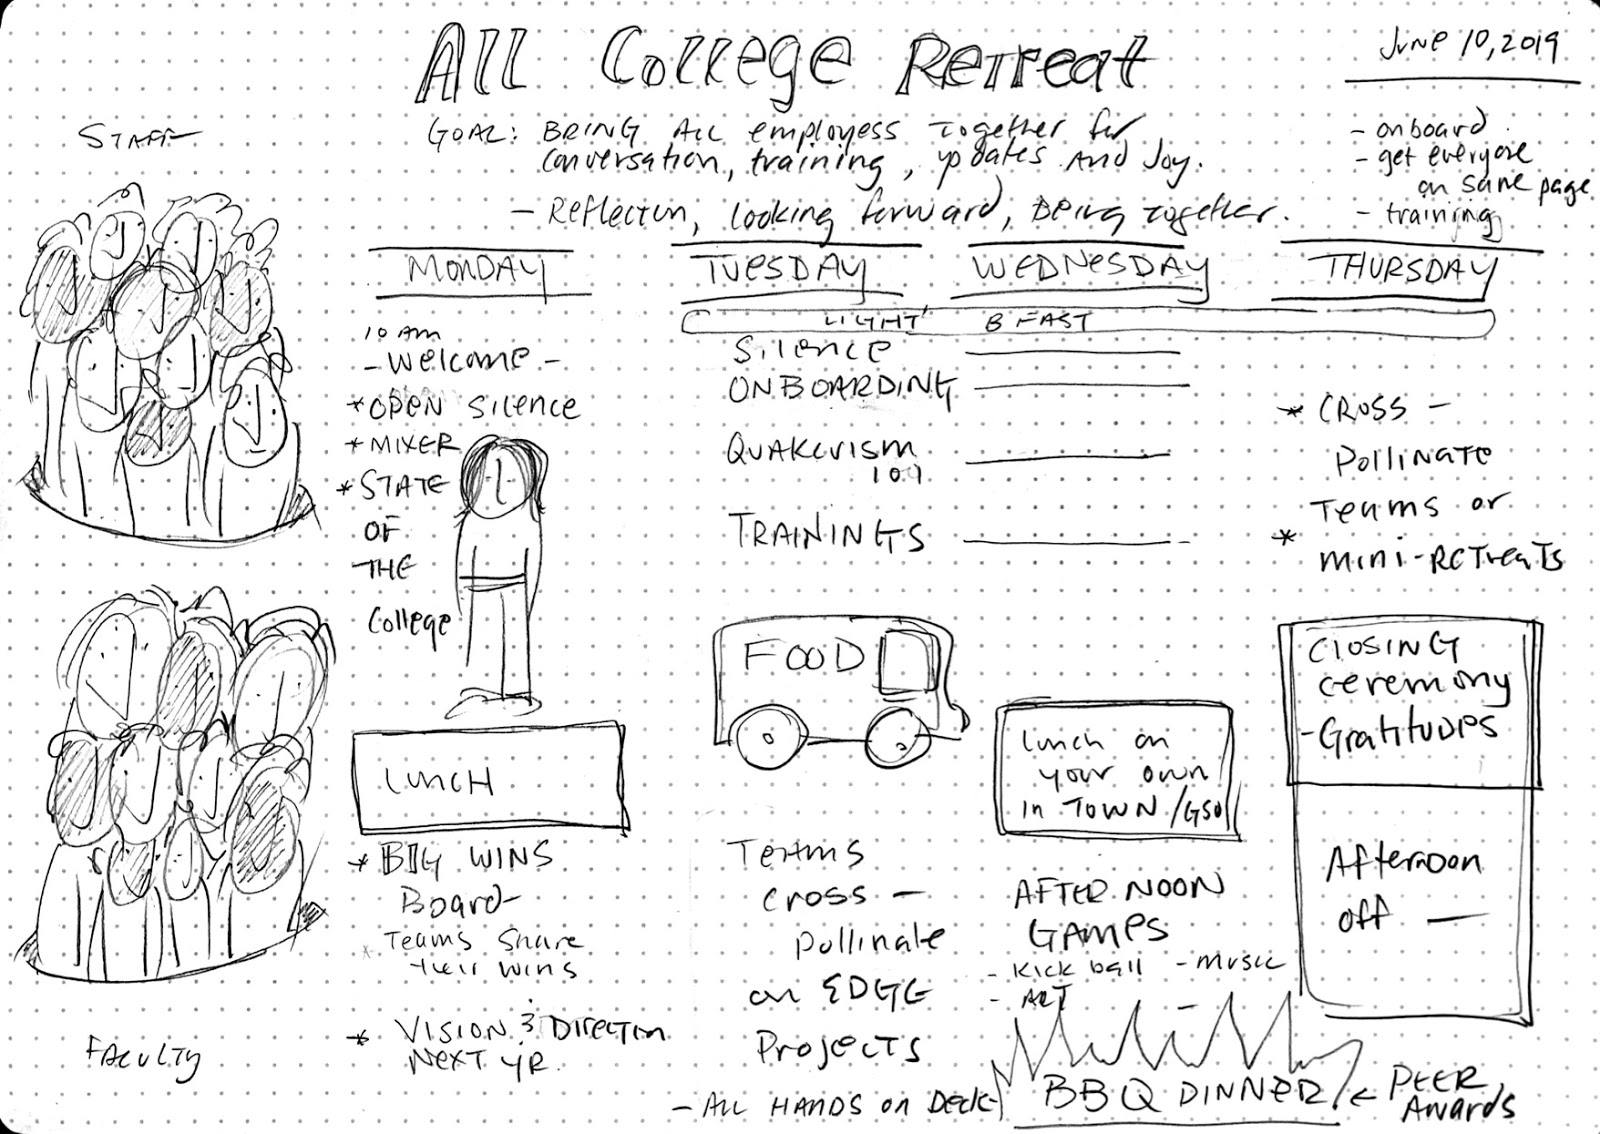 All College Retreat
June 10, 2019
STAFF
GOAL: BRING All employess together for
conversation, training, updates And Joy.
- Reflectin, looking forward, Being together.
- onboard
- get everyone
on same page
- training
MONDAY
TUESDAY
WEDNESDAY
THURSDAY
LIGHT BFAST
10 am
- Welcome -
* OPEN Silence
* MIXER
* STATE
OF
THE
College
LUNCH
* BIG WINS
Board-
Teams Share
their wins
* VISION & Direction
NEXT YR.
Silence
ONBOARDING
QUAKERISM
101
TRAININGS
FOOD
Teams
cross -
pollinate
on EDGE
Projects
- ALL HANDS on Deck -
lunch on
your own
in TOWN /GSO
AFTERNOON
GAMES
- Kick ball - music
- ART
BBQ DINNER
← PEER
Awards
* CROSS -
Pollinate
Teams or
* mini-RETreats
Closing
ceremony
- Gratitudes
Afternoon
off —
FACULTY